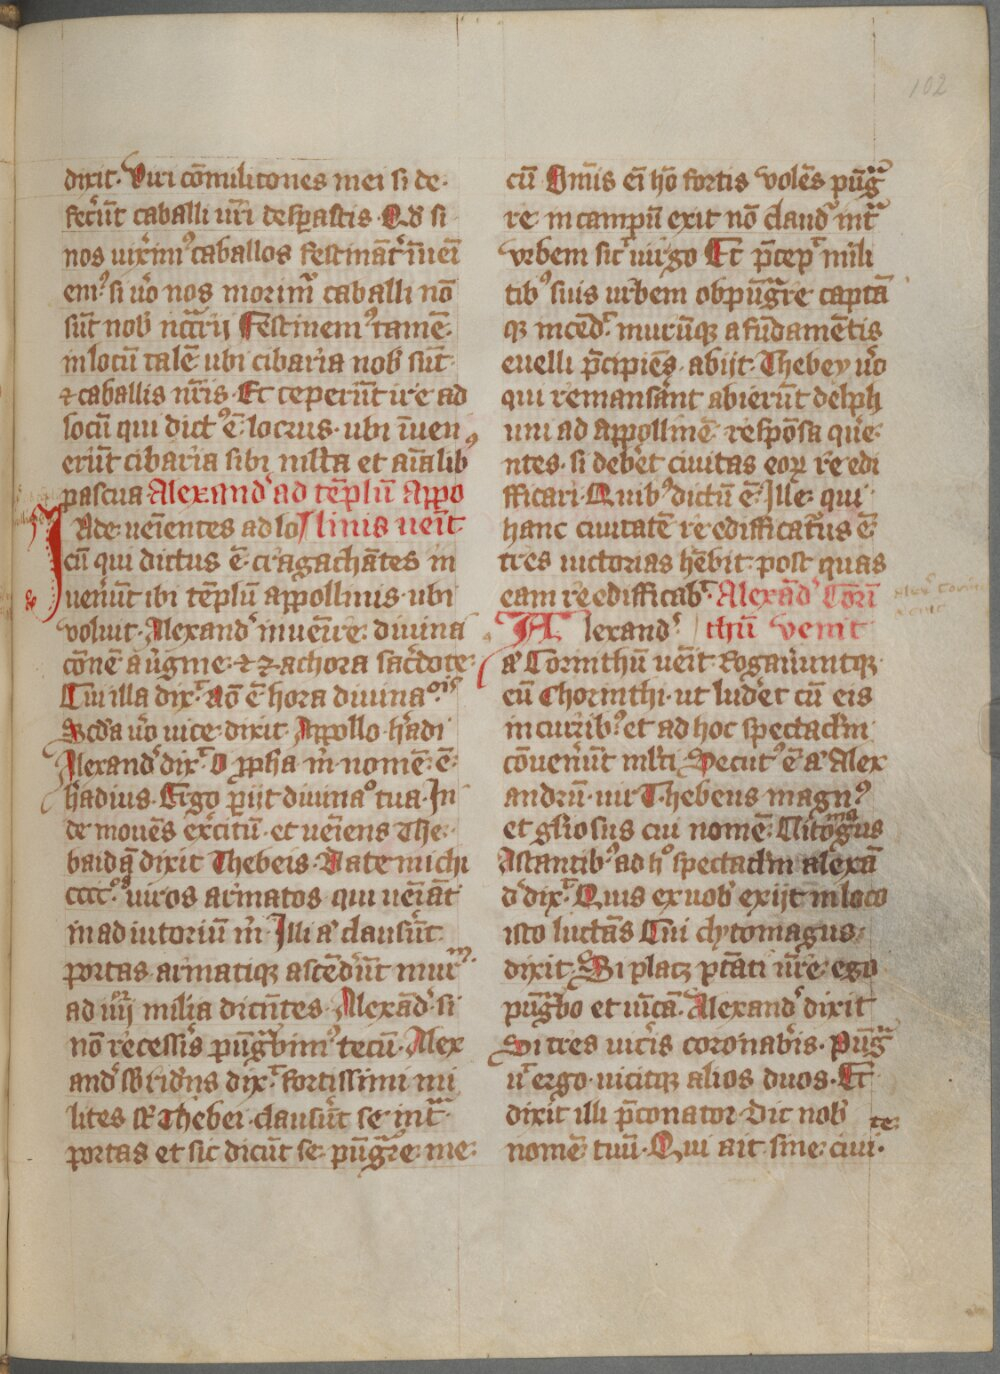 102
dixit. Viri cōmilitones mei si de
fecerūt caballi ur̄i desperastis. Qd̄ si
nos uixim᷒ caballos festināt᷑ īueī
em᷒ si u̾o nos morim᷑ caballi nō
sūt nob̾ nccārij Festinem᷒ tamē
in locū talē ubi cibaria nob̾ sūt
⁊ caballis nr̄is. Et ceperūt ire ad
locū qui dict᷒ ē locrus. ubi īuen
erūt cibaria sibi mill̄ta et aīalib᷒
pascua Alexand̾ ad tēplū appo
Ade ueīentes ad lo llinis uenīt
cū qui dictus ē ciragachātes in
uenerūt ibi tēplū appollinis. ubi
voluit. Alexand̾ inuenire diuina
cōnē augme ⁊ zachora sac̾dote
Cui illa dix᷑. Nō ē hora diuina oīs
Scd̄a u̾o uice dixit Appollo hadi
Alexand̾ dix᷑. O ꝓpha m̄ nomē ē
hadius. Ergo p̄ijt diuina°tua. In
de mouēs ex̾citū. et ueniens The
baida dixit Thebeis. Date michi
cccc.°ˢ uiros armatos qui ueniāt
in ad iutoriū m̄. Illi a̾ clauserūt
portas armatiqꝫ ascēderūt mur᷑
ad iiij milia dicentes Alexād̾ si
nō recesseris pūgabim᷒ tecū. Alex
and̾ sb̄ridēns dix᷑. fortissimi mi
lites st̾ Thebei clauserūt se int̄
portas et sic dicūt se pūgre me
cū Omīs eī hō fortis volēs pūg
re in campū exit nō claud᷑ int̄
vrbem sic᷑ uirgo Et p̄cep᷑ mili
tib᷒ suis urbem obpūgre captā
qꝫ incēd᷑ murūqꝫ a fūdamētis
euelli p̄cipiēs. abijt. Thebey u̾o
qui remanserant abierūt delph
um ad appollinē respōsa que
ntes. si deberet ciuitas eoꝝ re edi
fficari. Quib᷒ dictū ē. Ille qui
hanc ciuitatē re edifficaturus ē
tres uictorias hēbit. post quas
eam re edifficab᷑. Alexād̾ Cori
Alexand̾ thū venit
a̾ Corinthū uenīt Rogaueruntqꝫ
eū Chorinthi. ut luderet cū eis
in currib᷒ et ad hoc spectaclm̄
cōuenerūt ml̄ti Secut᷒ ē a̾ Alex
andrū. uir Thebeus magn᷒
et gl̄iosus cui nomē. Clitomagus
Astantib᷒ ad h° spectaclm̄ alexā
d̾ dix᷑. Quis ex uob̾ exijt in loco
isto luctās Cui clytomagus
dixit. Si placꝫ ptāti ur̄e ego
pūgbo et uīcā. Alexand̾ dixit
Si tres uic̾is coronab̾is. Pūg
u᷑ ergo. uicitqꝫ alios duos. Et
dixit illi p̄conator. Dic nob̾
nomē tuū. Qui ait sine ciui
te